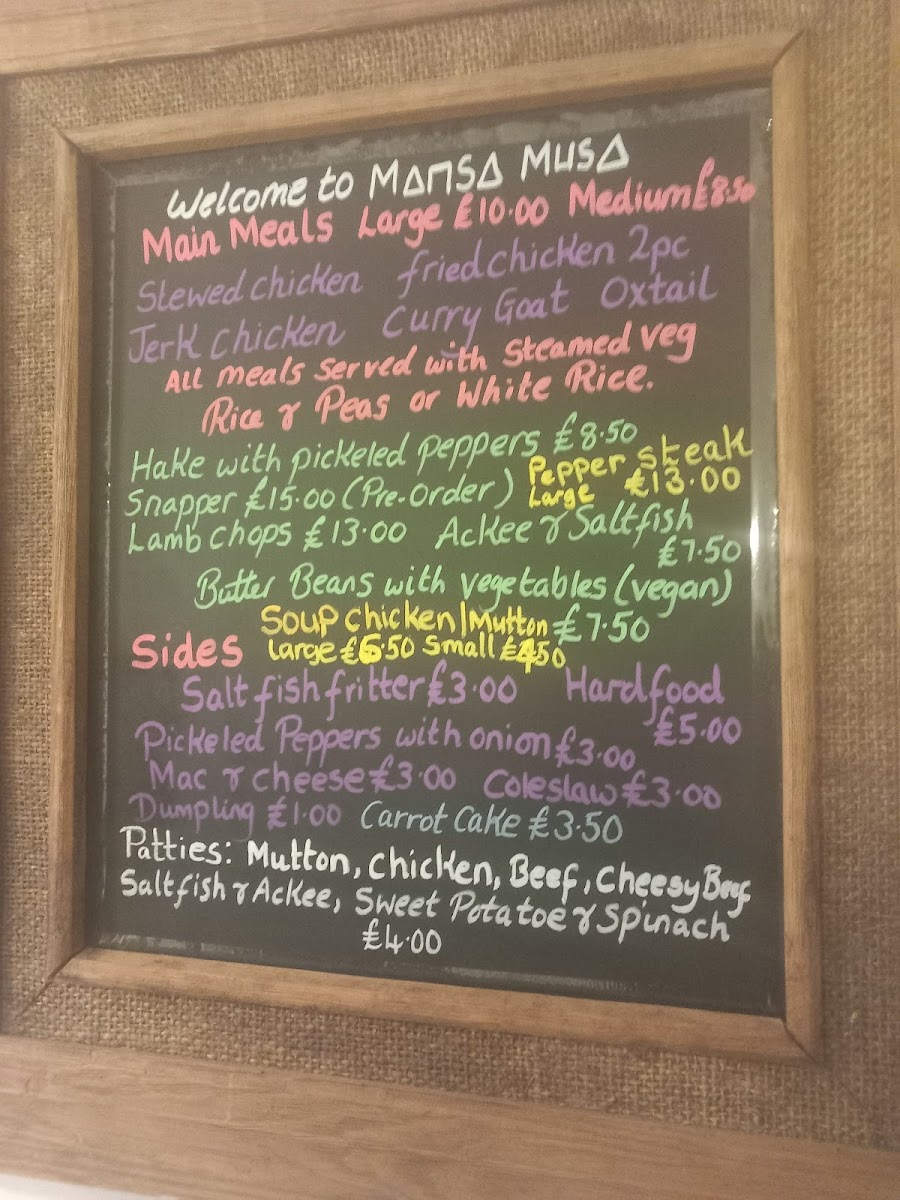 Welcome to MANSA MUSA
Main Meals Large £10.00 Medium £8.50
Stewed chicken fried chicken 2pc
Jerk chicken Curry Goat Oxtail
All meals served with steamed veg
Rice & Peas or White Rice.
Hake with pickeled peppers £8.50
Pepper steak
Snapper £15.00 (Pre-Order) Large £13.00
Lamb chops £13.00 Ackee & Saltfish
£7.50
Butter Beans with vegetables (vegan)
£7.50
Soup chicken/Mutton
Sides Large £6.50 Small £4.50
Salt fish fritter £3.00 Hardfood
£5.00
Pickeled Peppers with onion £3.00
Mac & cheese £3.00 Coleslaw £3.00
Dumpling £1.00 Carrot Cake £3.50
Patties: Mutton, Chicken, Beef, Cheesy Beef
Saltfish & Ackee, Sweet Potatoe & Spinach
£4.00